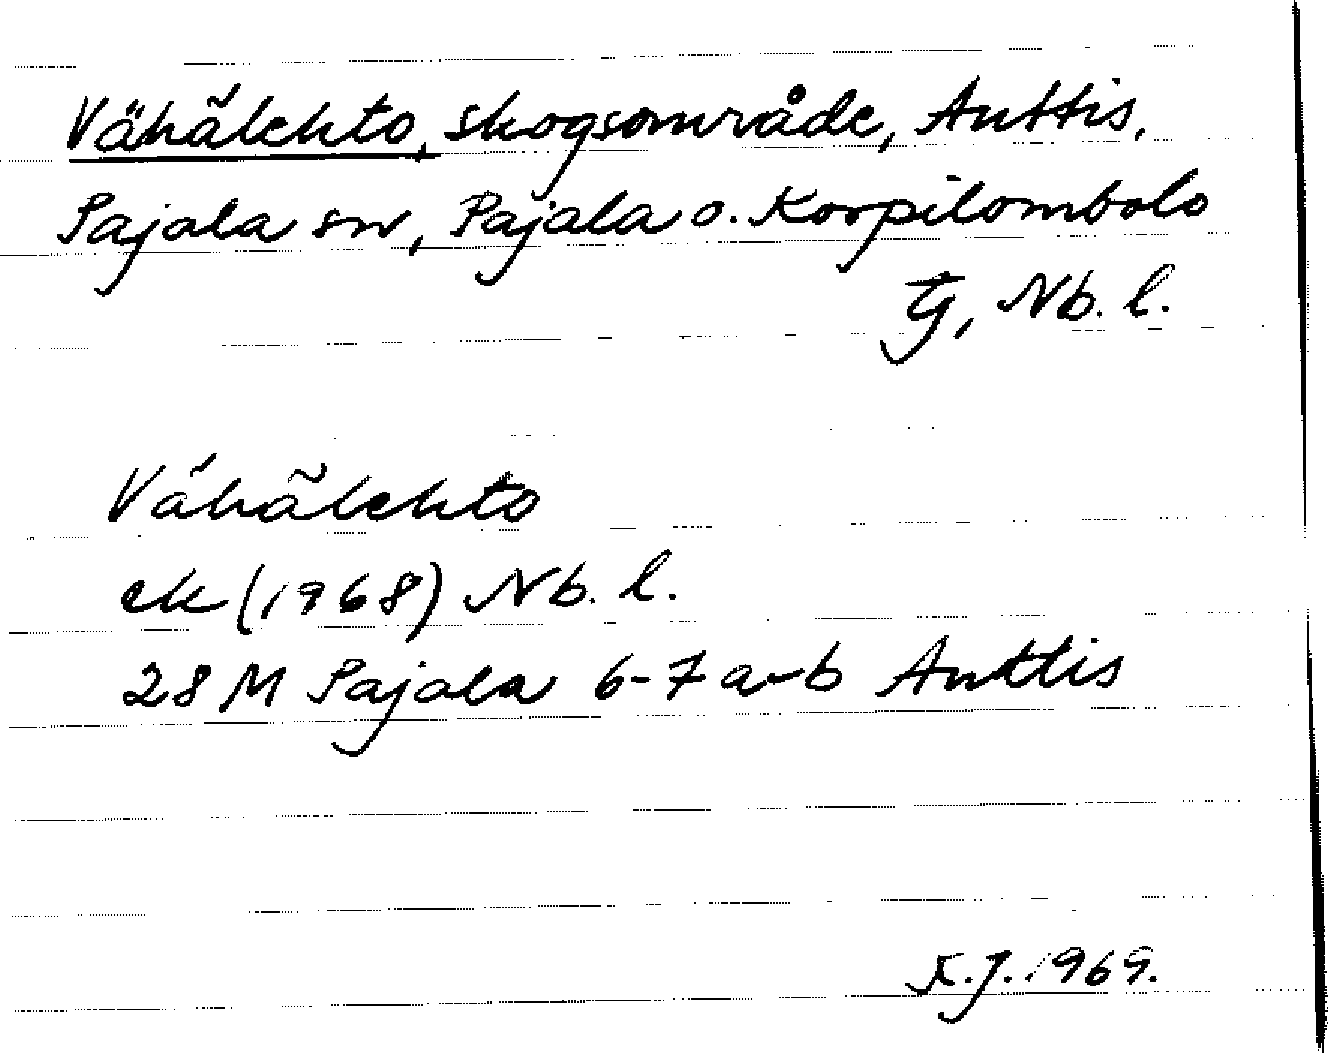 Vähälehto, skogsområde, Anttis,
Pajala sn, Pajala o. Korpilombolo
tg, Nb. l.
Vähälehto
ek (1968) Nb. l.
28 M Pajala 6-7 a-b Anttis
K.J. 1969.